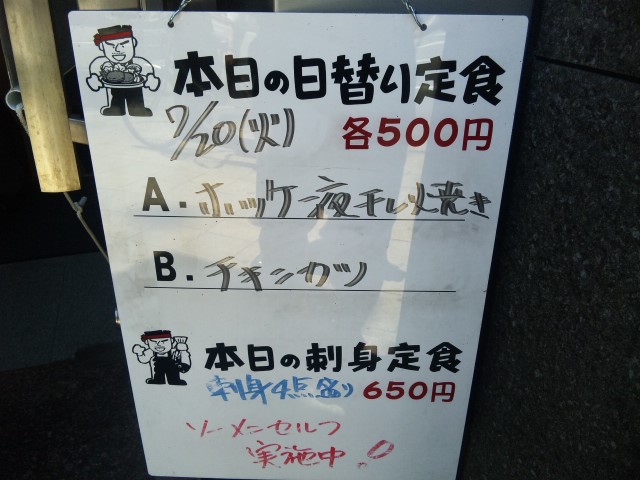 本日の日替り定食
7/20(火) 各500円
A. ホッケ一夜干し焼き
B. チキンカツ
本日の刺身定食
刺身4点盛り 650円
ソーメンセルフ
実施中!